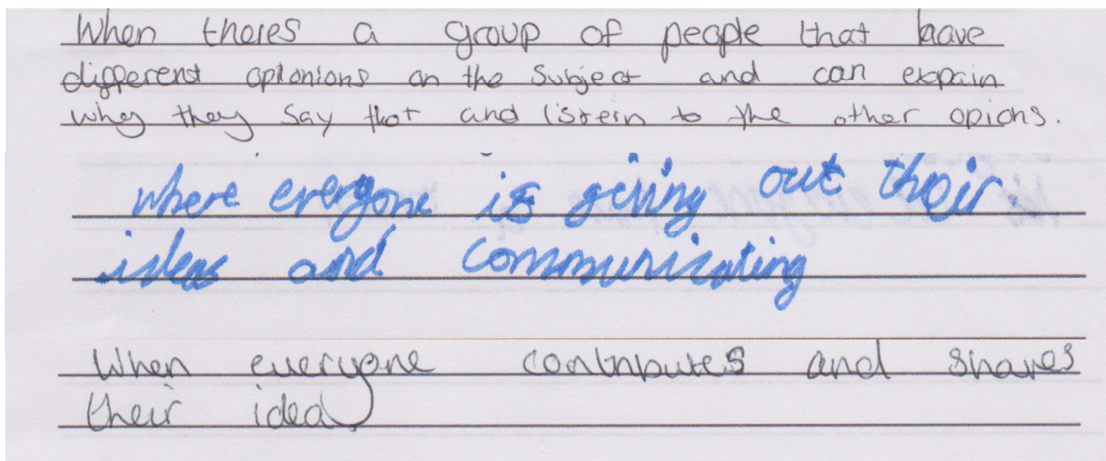 When theres a group of people that have
different opionions on the subject and can expain
whey they say that and listein to the other opions.
where everyone is giving out their
ideas and communicating
When everyone contributes and shares
their idea